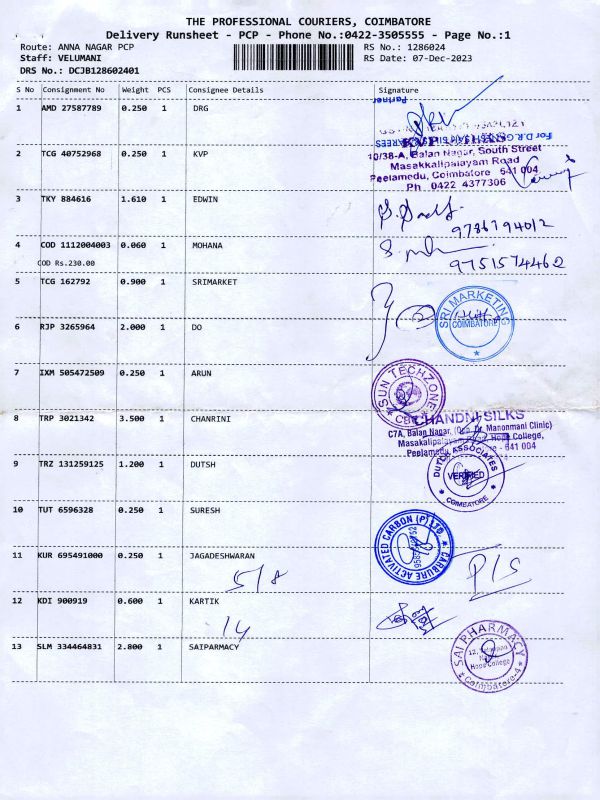 THE PROFESSIONAL COURIERS, COIMBATORE
Delivery Runsheet - PCP - Phone No.:0422-3505555 - Page No.:1
Route: ANNA NAGAR PCP RS No.: 1286024
Staff: VELUMANI RS Date: 07-Dec-2023
DRS No.: DCJB128602401
S No Consignment No Weight PCS Consignee Details Signature
1 AMD 27587789 0.250 1 DRG
Partner
For D.R.G.
2 TCG 40752968 0.250 1 KVP
10/38-A, Balan Nagar, South Street
Masakkalipalayam Road
Peelamedu, Coimbatore 641 004
Ph 0422 4377306
3 TKY 884616 1.610 1 EDWIN
9786794012
4 COD 1112004003 0.060 1 MOHANA
COD Rs.230.00
9751574462
5 TCG 162792 0.900 1 SRIMARKET
SRI MARKETING
COIMBATORE
6 RJP 3265964 2.000 1 DO
7 IXM 505472509 0.250 1 ARUN
SUN TECHZONE
CBE
8 TRP 3021342 3.500 1 CHANRINI
CHANDNI SILKS
C7A, Balan Nagar, (Opp. Dr. Manonmani Clinic)
Masakalipalayam Road, Hope College,
Peelamedu, Coimbatore - 641 004
9 TRZ 131259125 1.200 1 DUTSH
ASSOCIATES
VERIFIED
COIMBATORE
10 TUT 6596328 0.250 1 SURESH
CARBURE ACTIVATED CARBON (P) LTD
11 KUR 695491000 0.250 1 JAGADESHWARAN
5/8
P/S
12 KDI 900919 0.600 1 KARTIK
14
13 SLM 334464831 2.800 1 SAIPARMACY
SAI PHARMACY
Hope College
Coimbatore-4